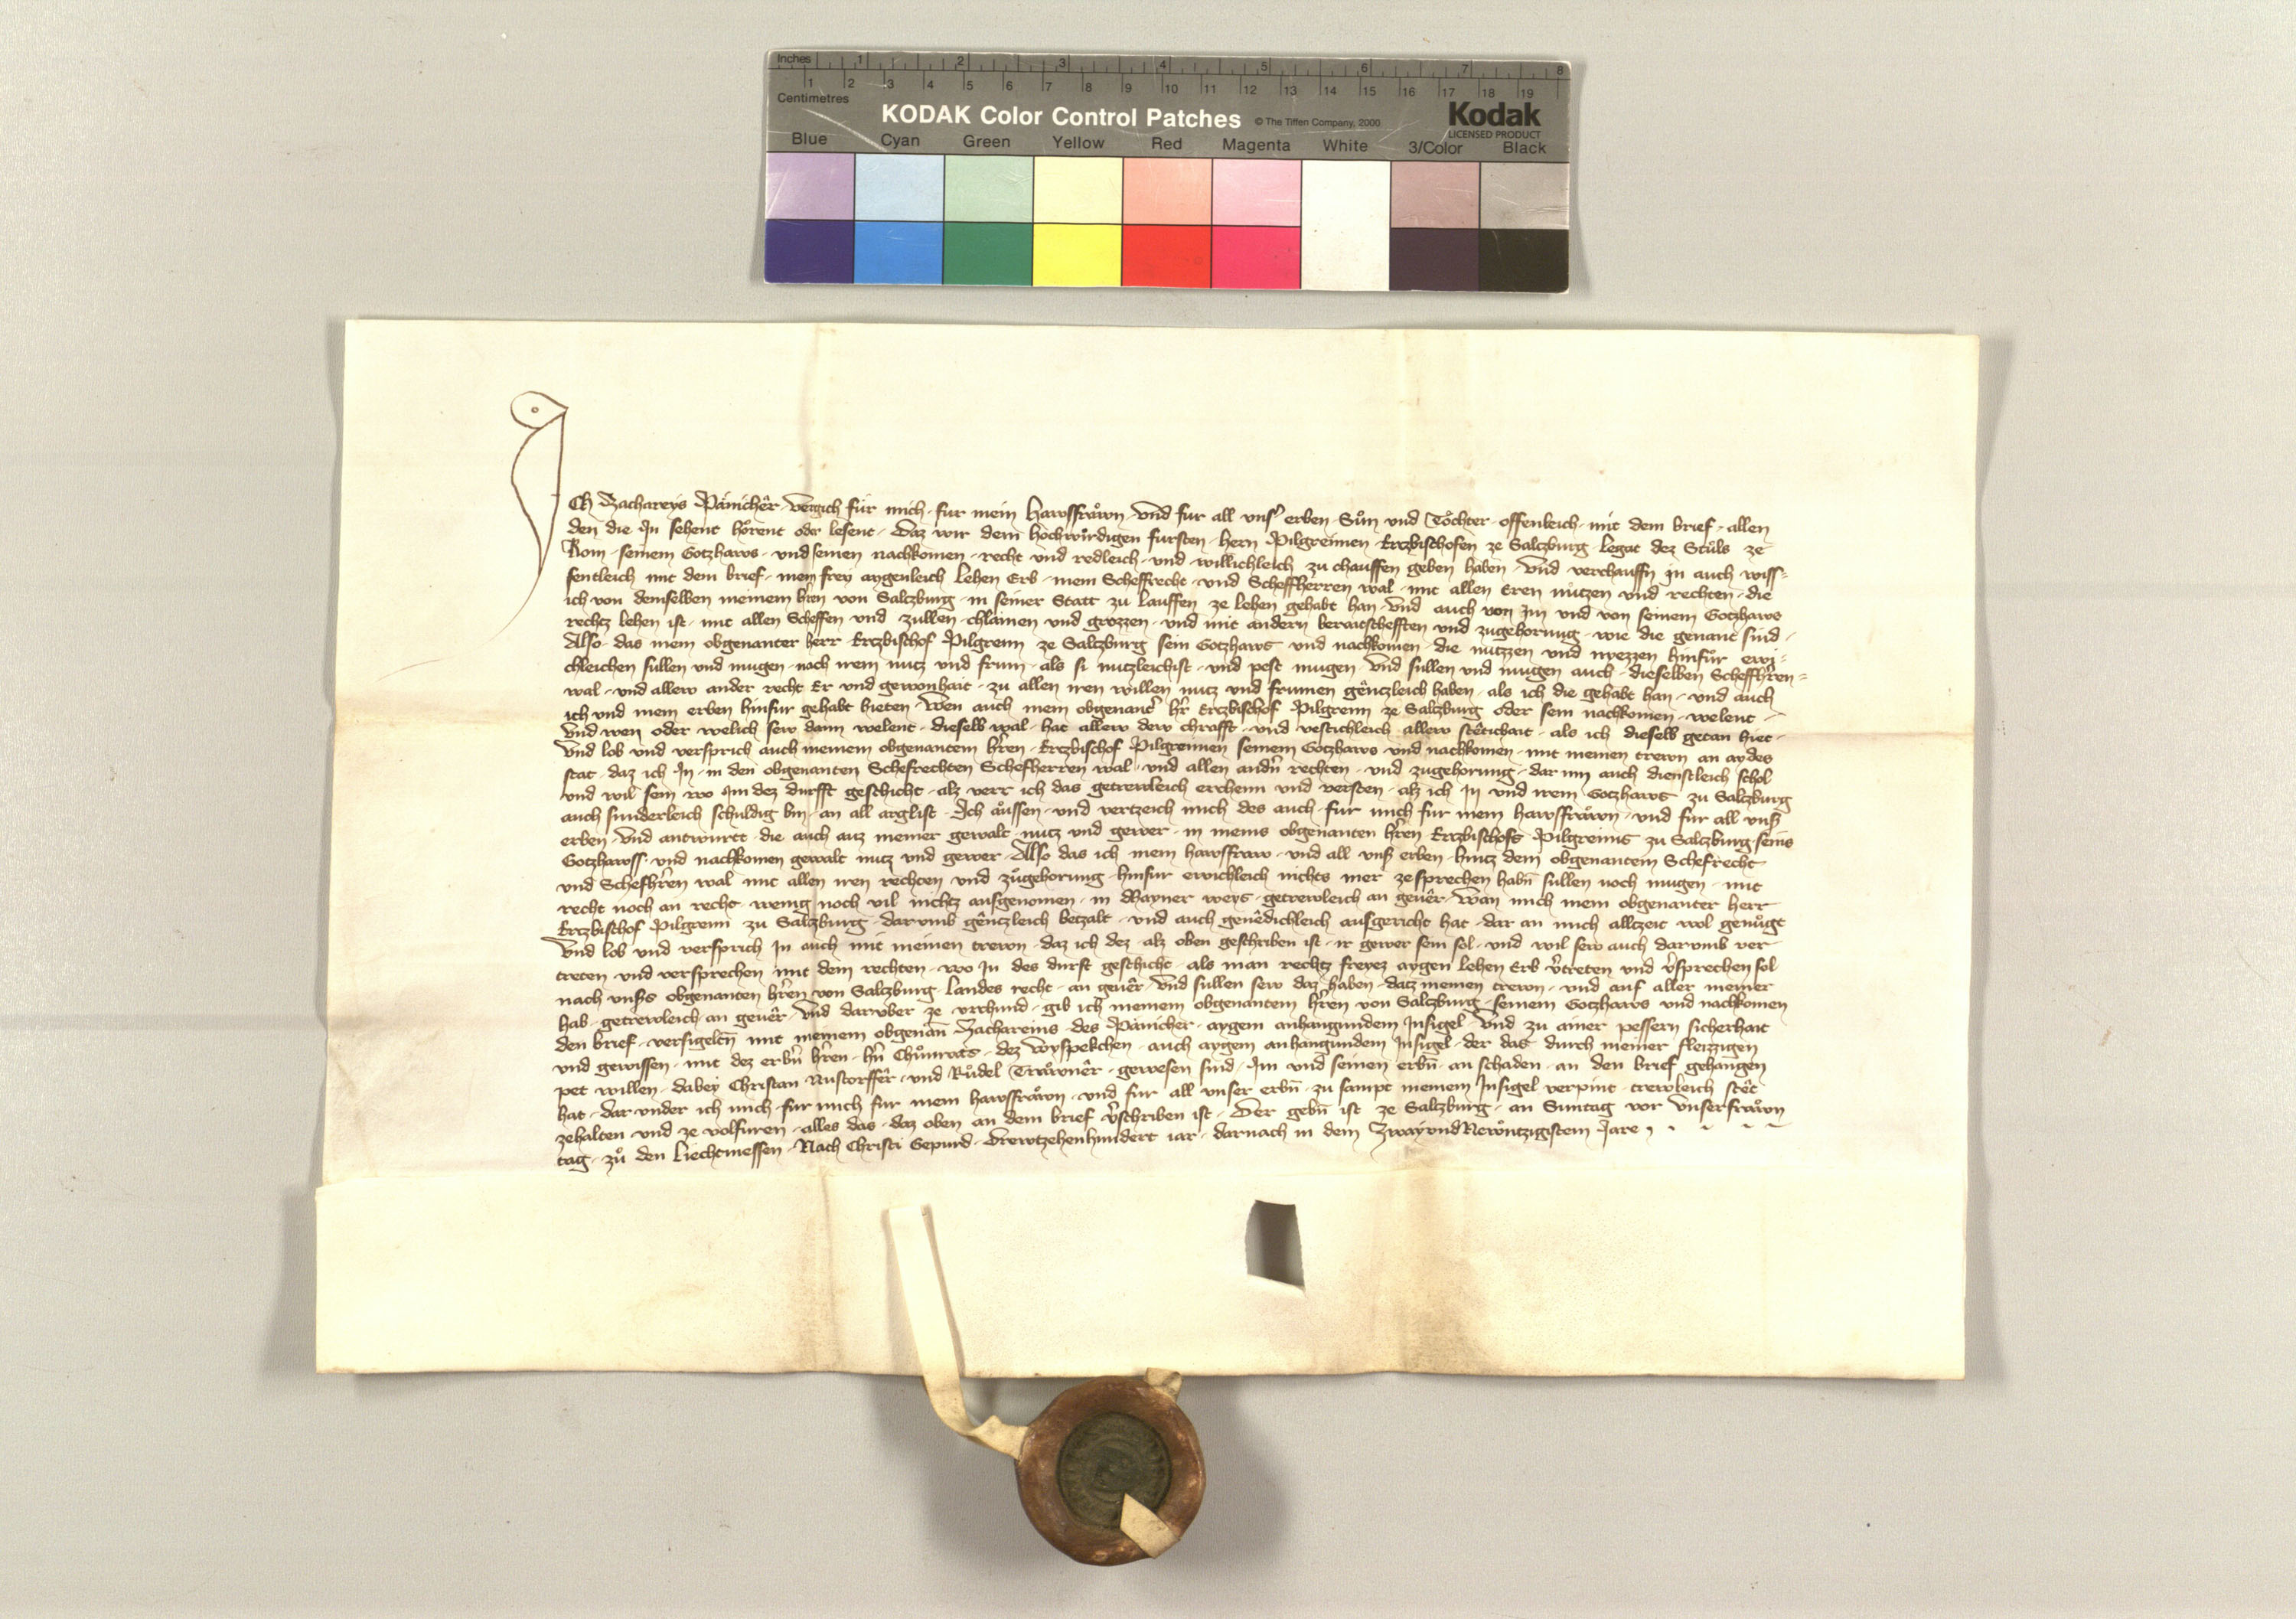 Inches 1 2 3 4 5 6 7 8
1 2 3 4 5 6 7 8 9 10 11 12 13 14 15 16 17 18 19
Centimetres
KODAK Color Control Patches © The Tiffen Company, 2000 Kodak
LICENSED PRODUCT
Blue Cyan Green Yellow Red Magenta White 3/Color Black
Ich Zachareys Pänichêr vergich für mich fur mein Hawsfrawn Vnd fur all vnsˀ erben Sůn vnd Tochter offenleich mit dem brief allen
den die In sehent hörent oder lesent Daz wir dem hochwirdigen fursten hern Pilgreimen Erczbischofen ze Salczburg Legat dez Stůls ze
Rom seinem Gotzhaws vnd seinen nachkomen recht vnd redleich vnd willichleich zu chauffen geben haben Vnd verchauffen in auch wiss=
sentleich mit dem brief mein frey aygenleich Lehen Erb mein Scheffrecht vnd Scheffherren wal mit allen Eren nůtzen vnd rechten die
ich von demselben meinem hˀren von Salczburg in seiner Statt zu Lauffen ze lehen gehabt han Vnd auch von Im vnd von seinem Gotzhaws
rechtz lehen ist mit allen Scheffen vnd zullen chlainen vnd grozzen vnd mit andern beraitschefften vnd zugehorung wie die genant sind
Also das mein obgenanter herr Erczbischof Pilgreim ze Salczburg sein Gotzhaws vnd nachkomen die nutzzen vnd nyezzen hinfůr ewi=
chleichen sullen vnd mugen nach irem nutz vnd frum als si nutzleichist vnd pest mugen Vnd sullen vnd mugen auch dieselben Scheffhˀren=
wal vnd allew ander recht Er vnd gewonhait zu allen iren willen nutz vnd frumen gênczleich haben als ich die gehabt han vnd auch
ich vnd mein erben hinfur gehabt hieten Wen auch mein obgenantˀ hˀr Erczbischof Pilgreim ze Salczburg oder sein nachkomen welent
Vnd wen oder welich sew dann welent dieselb wal hat allew dew chrafft vnd vestichleich allew stêtichait als ich dieselb getan hiet
Vnd lob vnd versprich auch meinem obgenantem hˀren Erczbischof Pilgreimen seinem Gotzhaws vnd nachkomen mit meinen trewn an aydes
stat daz ich In in den obgenanten Schefrechten Schefherren wal vnd allen andˀn rechten vnd zugehorung dar inn auch dienstleich schol
vnd wil sein wo im dez durfft geschicht alz verr ich das getrewleich erchenn vnd versten alz ich In vnd irem Gotzhaws zu Salczburg
auch sunderleich schuldig bin an all arglist Ich aůssen vnd vertzeich mich des auch fur mich fur mein hawsfrawn vnd fur all vnsˀ
erben Vnd antwurtt die auch auz meiner gewalt nutz vnd gewer in meins obgenanten hˀren Erczbischofs Pilgreims zu Salczburg seins
Gotzhawss vnd nachkomen gewalt nutz vnd gewer Also das ich mein hawsfraw vnd all vnsˀ erben hintz dem obgenantem Schefrecht
vnd Schefhˀren wal mit allen iren rechten vnd zůgehorung hinfur ewichleich nichts mer zesprechen habn̄ sullen noch mugen mit
recht noch an recht wenig noch vil nichtz ausgenomen in chayner weys getrewleich an geuêr Wan mich mein obgenanter herr
Erczbischof Pilgreim zu Salczburg darvmb gênczleich betzalt vnd auch genêdichleich ausgericht hat dar an mich alltzeit wol genůgt
Vnd lob vnd versprich In auch mit meinen trewn daz ich dez alz oben geschriben ist ir gewer sein sol vnd wil sew auch darvmb ver
treten vnd versprechen mit dem rechten wo In des durft geschicht als man rechtz freyez aygen Lehen Erb vˀtreten vnd vˀsprechen sol
nach vnsˀs obgenanten hˀren von Salczburg Landes recht an geuêr Vnd sullen sew daz haben datz meinen trewn vnd auf aller meiner
hab getrewleich an geuêr Vnd darvber ze vrchund gib ich meinem obgenantem hˀren von Salczburg seinem Gotzhaws vnd nachkomen
den brief versigeltn̄ mit meinem obgenan̄ Zachareins des Pänicher aygem anhangundem Insigel Vnd zu ainer pessern sicherhait
vnd gewissen mit dez erbˀn hˀren hˀn Chůnrats dez Wyspekchen auch aygem anhangundem Insigel der das durch meiner fleizzigen
pet willen dabey Christan Nustorffêr vnd Růdel Trawnêr gewesen sind Im vnd seinen erbn̄ an schaden an den brief gehangen
hat dar vnder ich mich fur mich fur mein hawsfrawn vnd fur all vnser erbn̄ zu sampt meinem Insigel verpint trewleich stêt
zehalten vnd ze volfuren alles das daz oben an dem brief vˀschriben ist Der gebn̄ ist ze Salczburg an Suntag vor Vnserfrawn
tag zů den Liechtmessen Nach Christi Gepurd Drewtzehenhundert iar darnach in dem ZwayvndNewntzigistem Jare